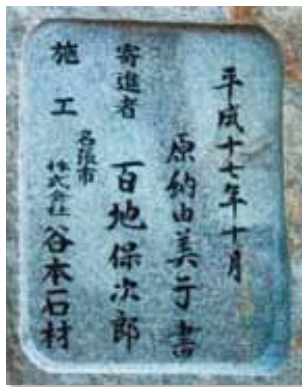 平成十七年十月
原納由美子書
寄進者 百地保次郎
施工 名張市 株式会社 谷本石材